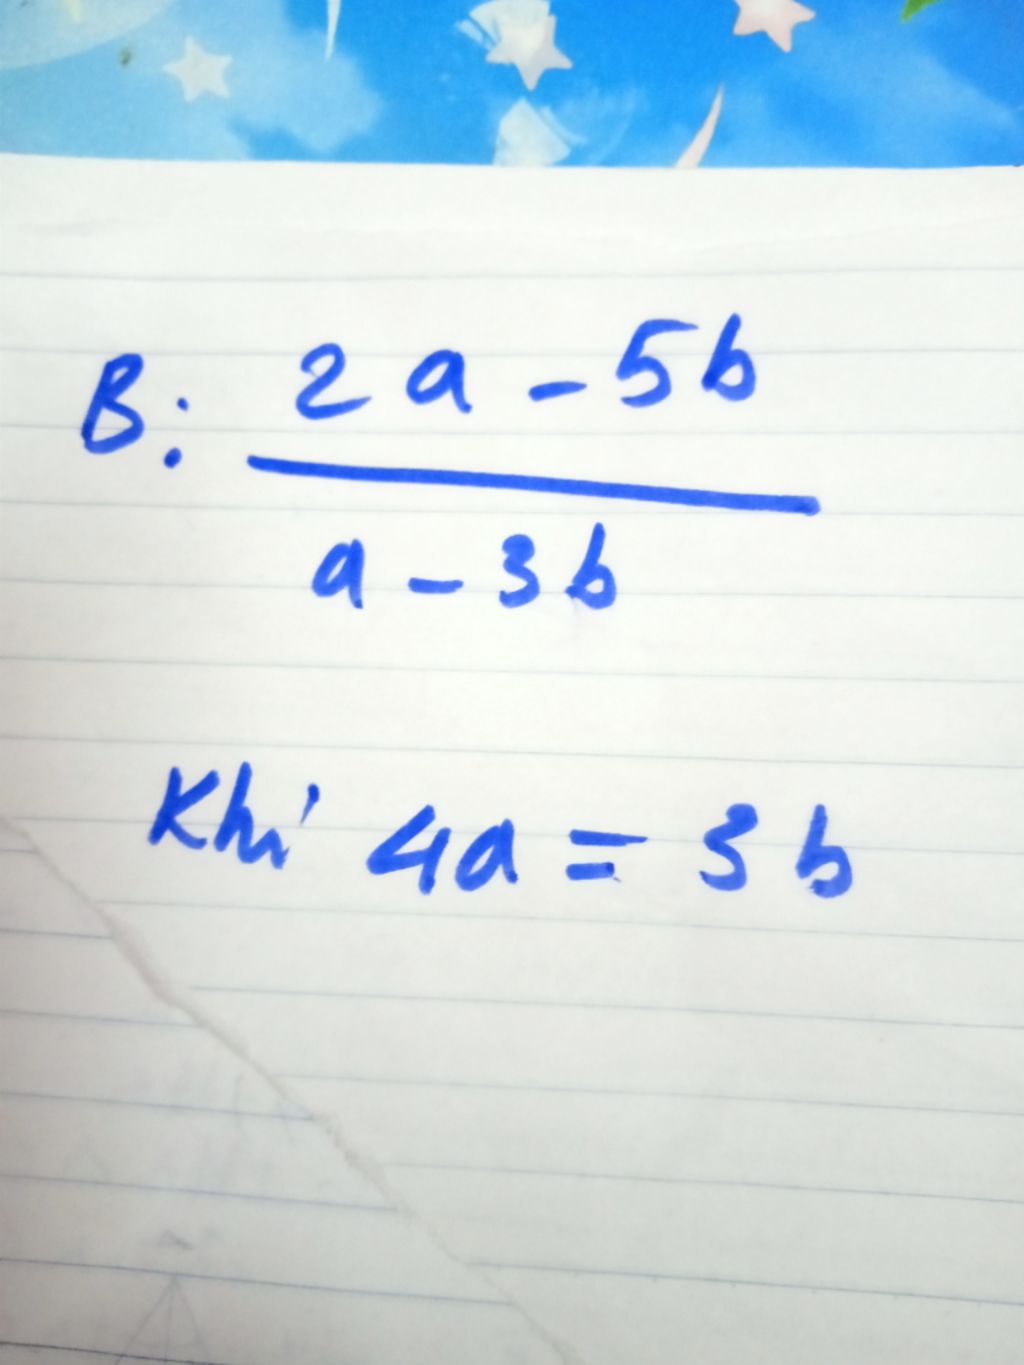 B: 2a - 5b
a - 3b
Khi 4a = 3b